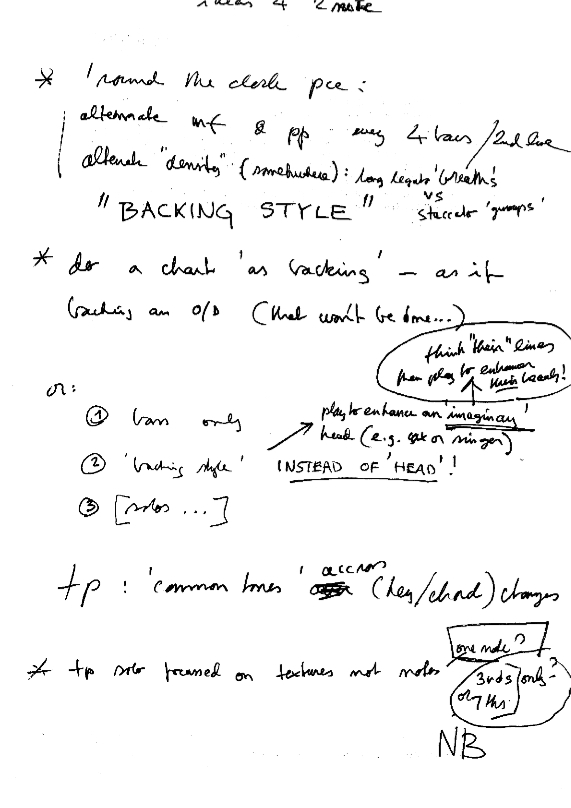 ideas 4 2 note
* 'round the clock pce :
alternate mf & pp every 4 bars / 2nd line
alternate "density" (somewhere) : long legato 'breaths'
vs
"BACKING STYLE" staccato 'gumps'
* do a chart 'as backing' – as if
backing an O/D (that won't be done...)
think "their" lines
then play to enhance
their breaths!
or:
① bass only
play to enhance an 'imaginary'
head (e.g. sax or singer)
② 'backing style' INSTEAD OF 'HEAD'!
③ [solos ...]
tp : 'common tones' accross (key/chord) changes
one note?
* tp solo focussed on textures not notes
3rds only?
or 7ths
NB